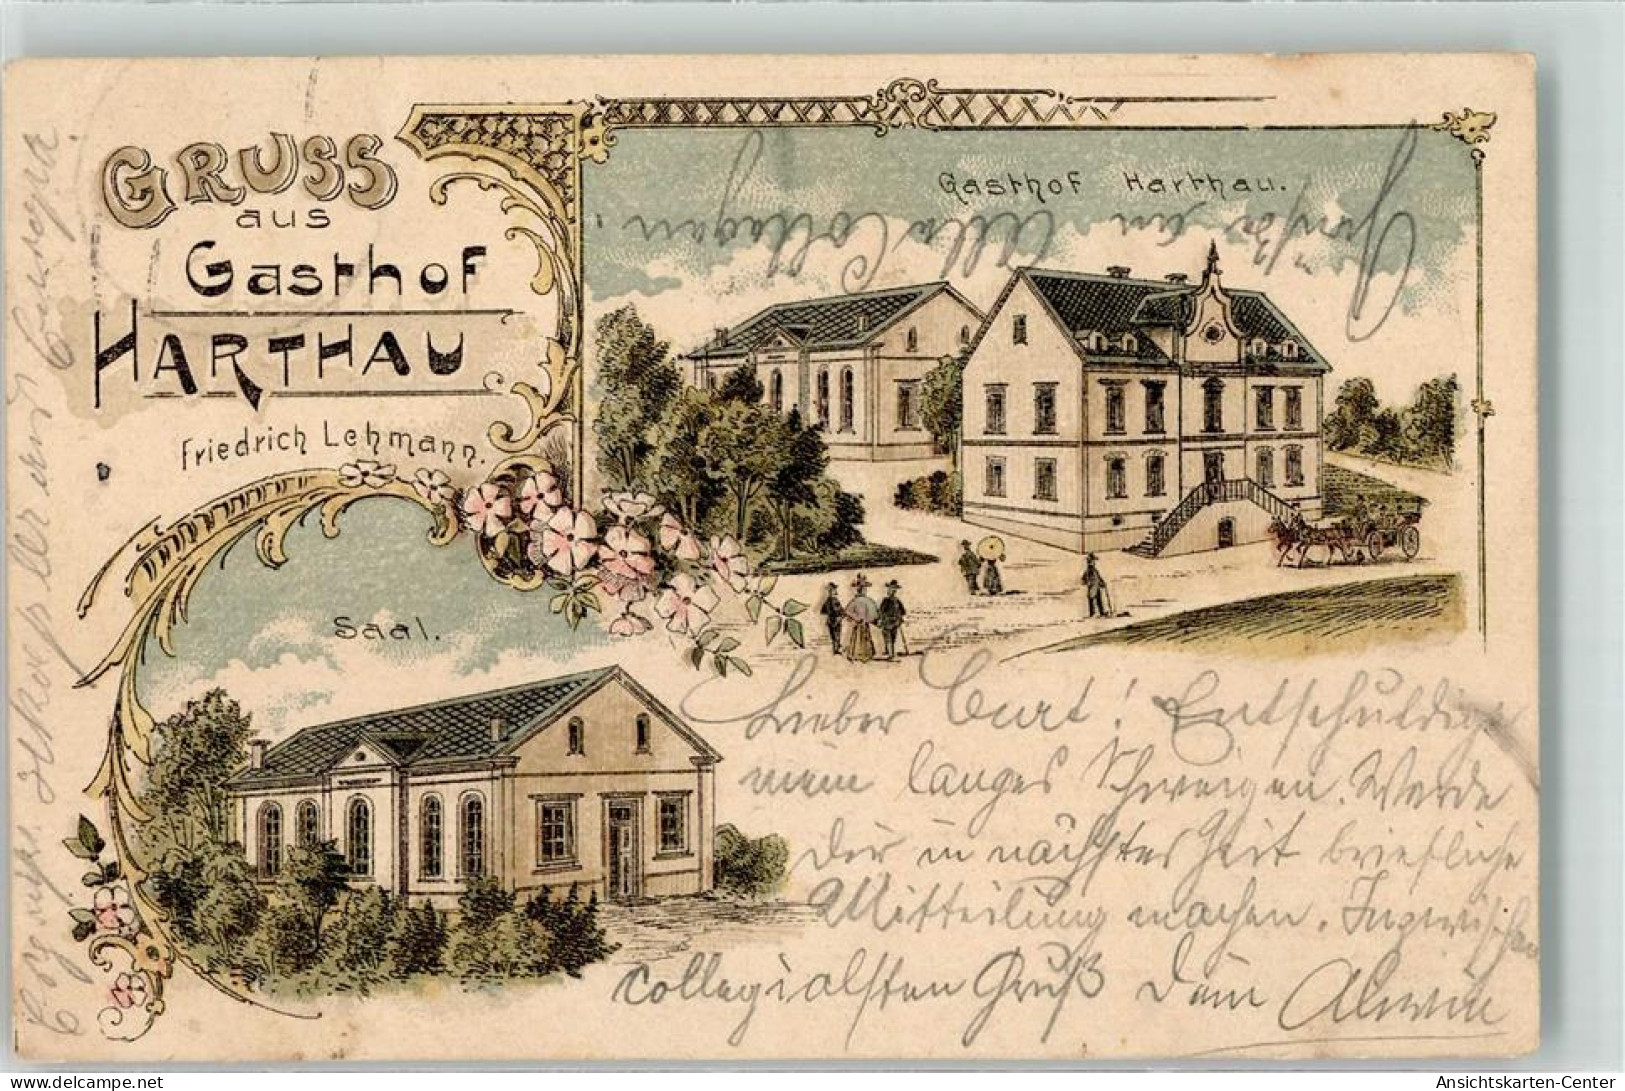 GRUSS
aus
Gasthof
HARTHAU
Friedrich Lehmann.
Gasthof Harthau.
Grüße an Alle Collegen
Saal.
Lieber Curt! Entschuldige
mein langes Schweigen. Werde
Dir in nächster Zeit briefliche
Mitteilung machen. Inzwischen
collegialsten Gruß Dein Alwin
Ansichtskarten-Center